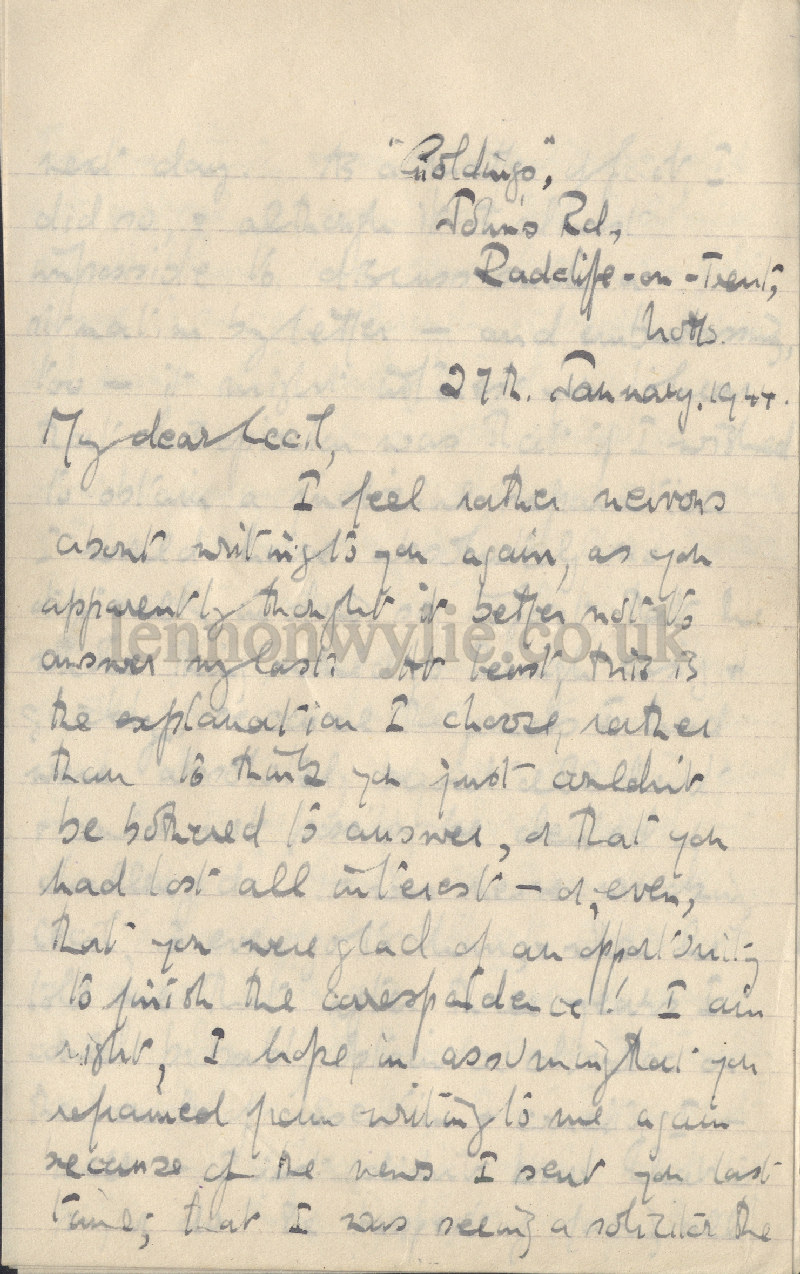 "Goldings",
John's Rd.,
Radcliffe-on-Trent,
Notts.
27th. January, 1944.
My dear Cecil,
I feel rather nervous
about writing to you again, as you
apparently thought it better not to
answer my last: At least, this is
the explanation I choose, rather
than to think you just couldn't
be bothered to answer, or that you
had lost all interest – or, even,
that you were glad of an opportunity
to finish the correspondence! I am
right, I hope, in assuming that you
refrained from writing to me again
because of the news I sent you last
time; that I was seeing a solicitor the
lennonwylie.co.uk